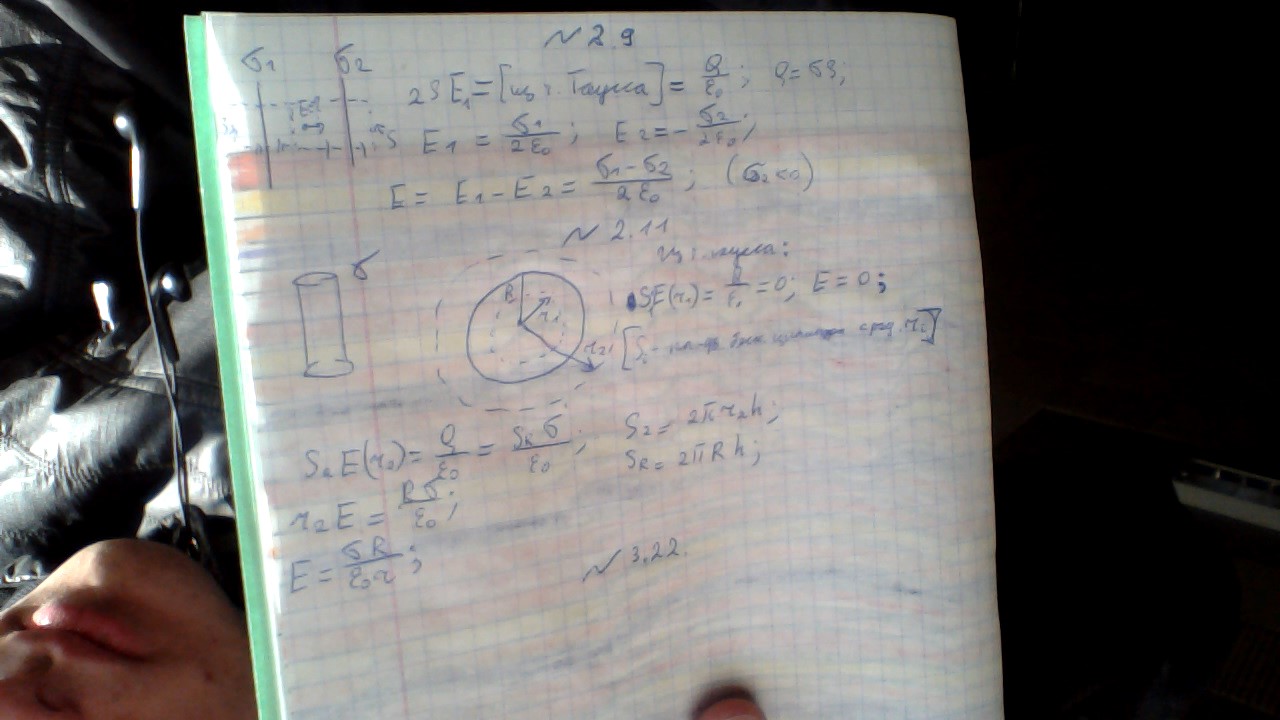 № 2.9
σ1 σ2
2SE1 = [из т. Гаусса] = Q/ε0; Q = σS;
E1 = σ1/2ε0; E2 = -σ2/2ε0;
E = E1 - E2 = (σ1 - σ2)/2ε0; (σ2<0)
№ 2.11
Из т. Гаусса:
σ
R r1 r2
SE(r1) = Q/ε0 = 0; E = 0;
S2E(r2) = Q/ε0 = SRσ/ε0; S2 = 2πr2h;
SR = 2πRh;
r2E = Rσ/ε0;
E = σR/ε0r;
№ 3.22.